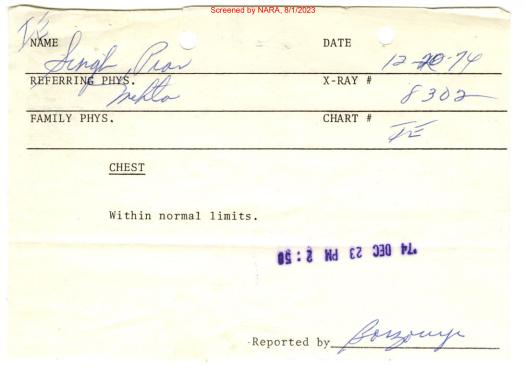 Screened by NARA, 8/1/2023
IE
NAME Singh, Pran DATE 12-20-74
REFERRING PHYS. Mehta X-RAY # 8302
FAMILY PHYS. CHART # IE
CHEST
Within normal limits.
'74 DEC 23 PM 2:50
Reported by